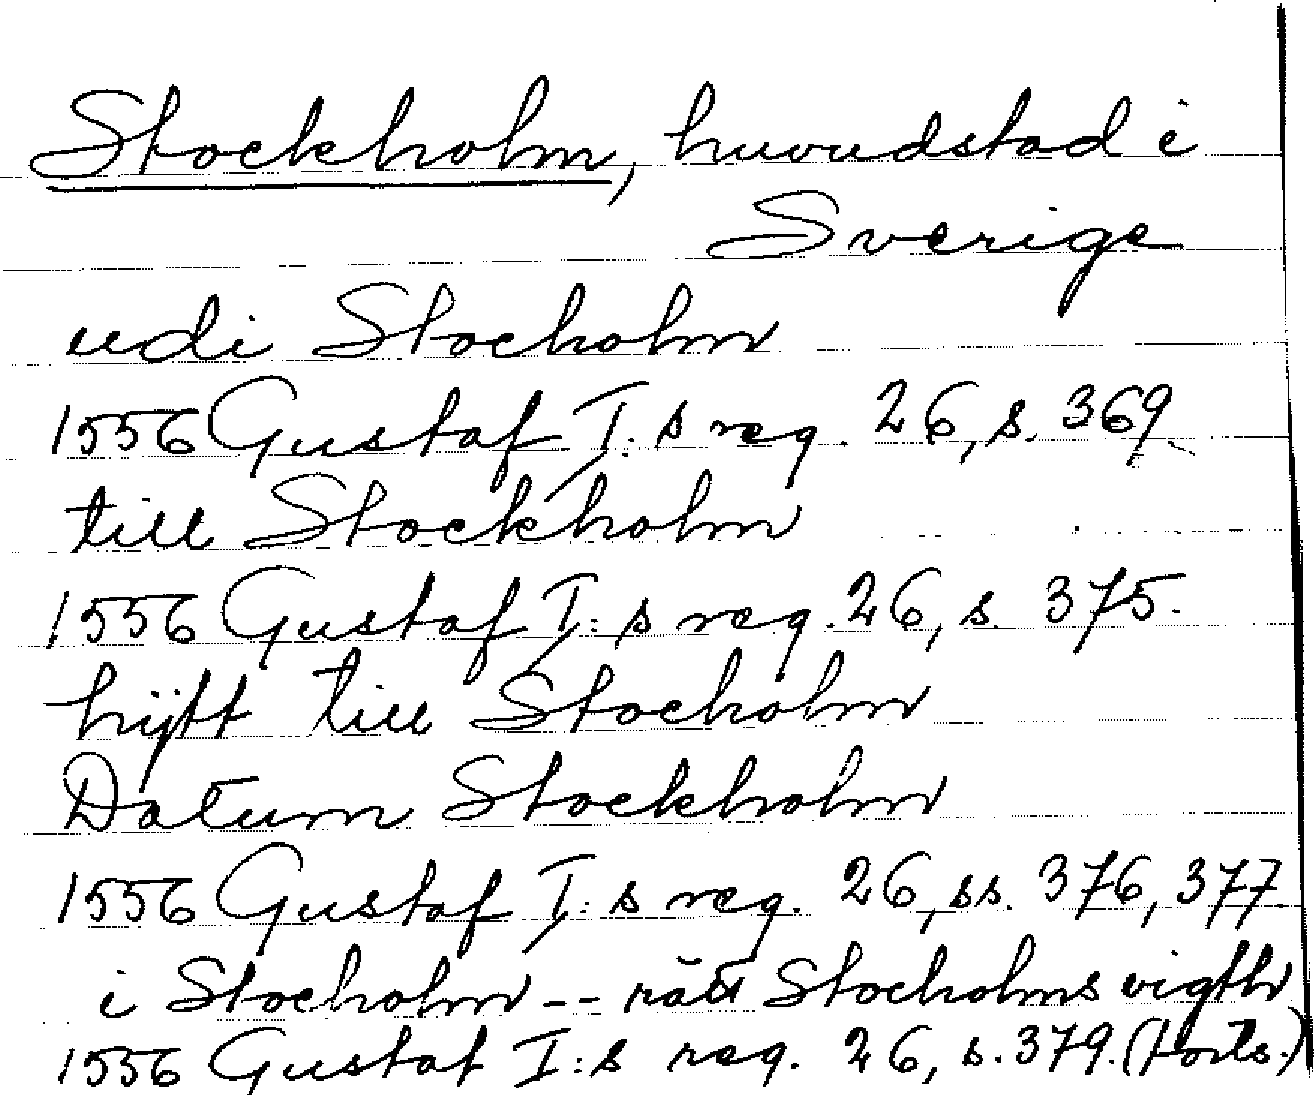 Stockholm, huvudstad i
Sverige
udi Stocholm
1556 Gustaf I:s reg. 26, s. 369.
till Stockholm
1556 Gustaf I:s reg. 26, s. 375.
hijtt till Stocholm
Datum Stockholm
1556 Gustaf I:s reg. 26, ss. 376, 377.
i Stocholm -- rätt Stocholms vigth
1556 Gustaf I:s reg. 26, s. 379. (forts.)